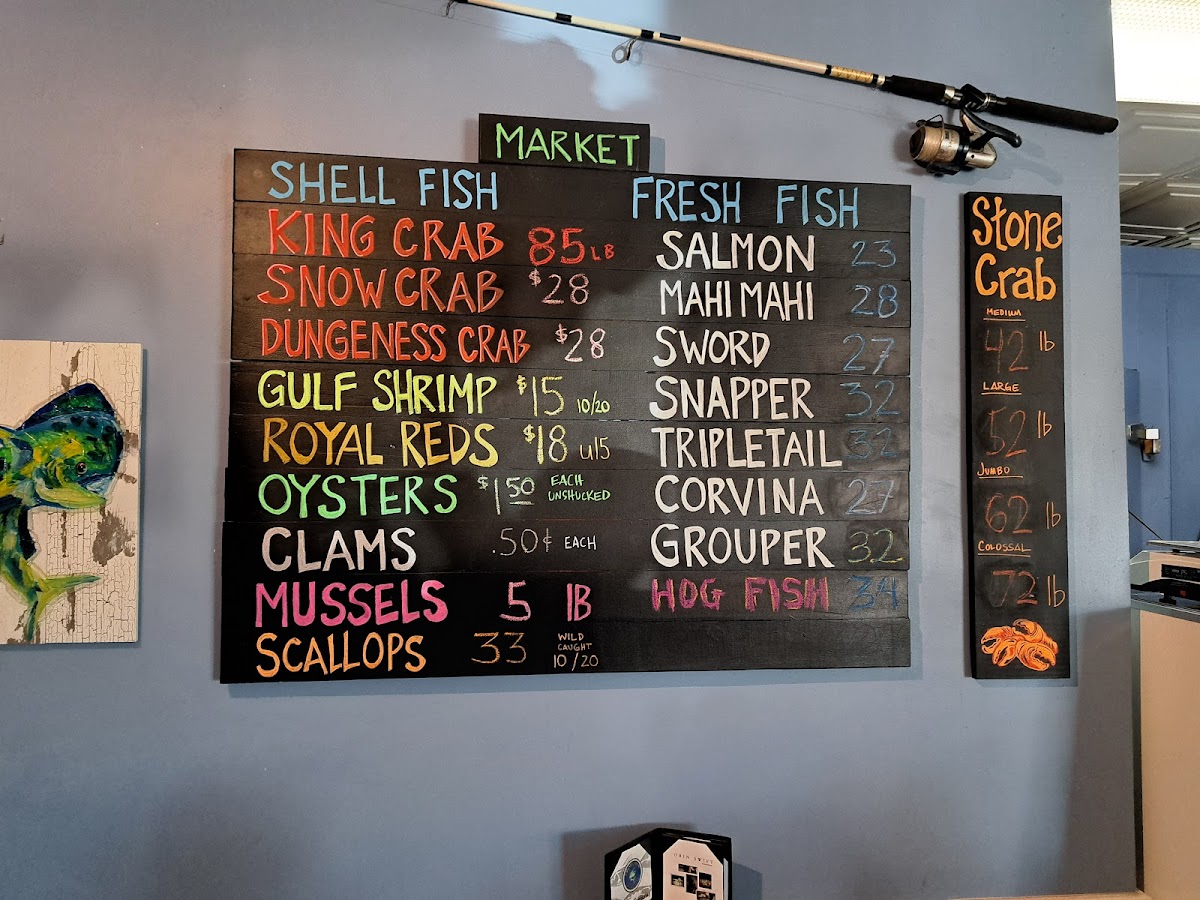 MARKET
SHELL FISH
KING CRAB 85 LB
SNOW CRAB $28
DUNGENESS CRAB $28
GULF SHRIMP $15 10/20
ROYAL REDS $18 U15
OYSTERS $1 50 EACH UNSHUCKED
CLAMS .50¢ EACH
MUSSELS 5 LB
SCALLOPS 33 WILD CAUGHT 10/20
FRESH FISH
SALMON 23
MAHI MAHI 28
SWORD 27
SNAPPER 32
TRIPLETAIL 32
CORVINA 27
GROUPER 32
HOG FISH 34
Stone
Crab
MEDIUM
42 lb
LARGE
52 lb
JUMBO
62 lb
COLOSSAL
72 lb
ORIN SWIFT